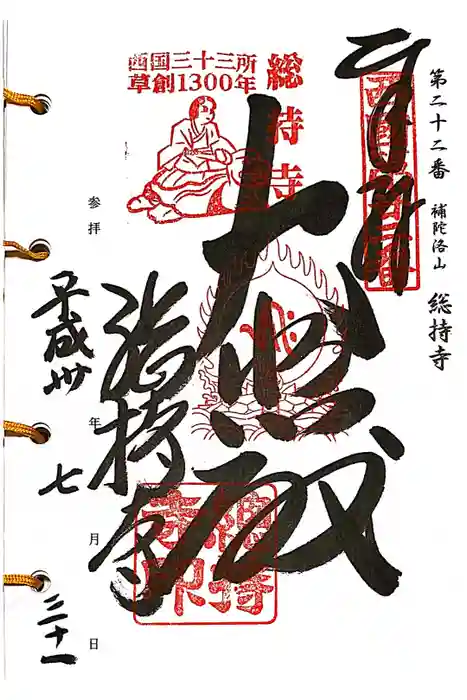 第二十二番 補陀洛山 総持寺
奉拝
西国二十二番
大悲殿
総持寺
西国三十三所
草創1300年
総持寺
総持寺印
参拝
平成卅年
七月
三十一日